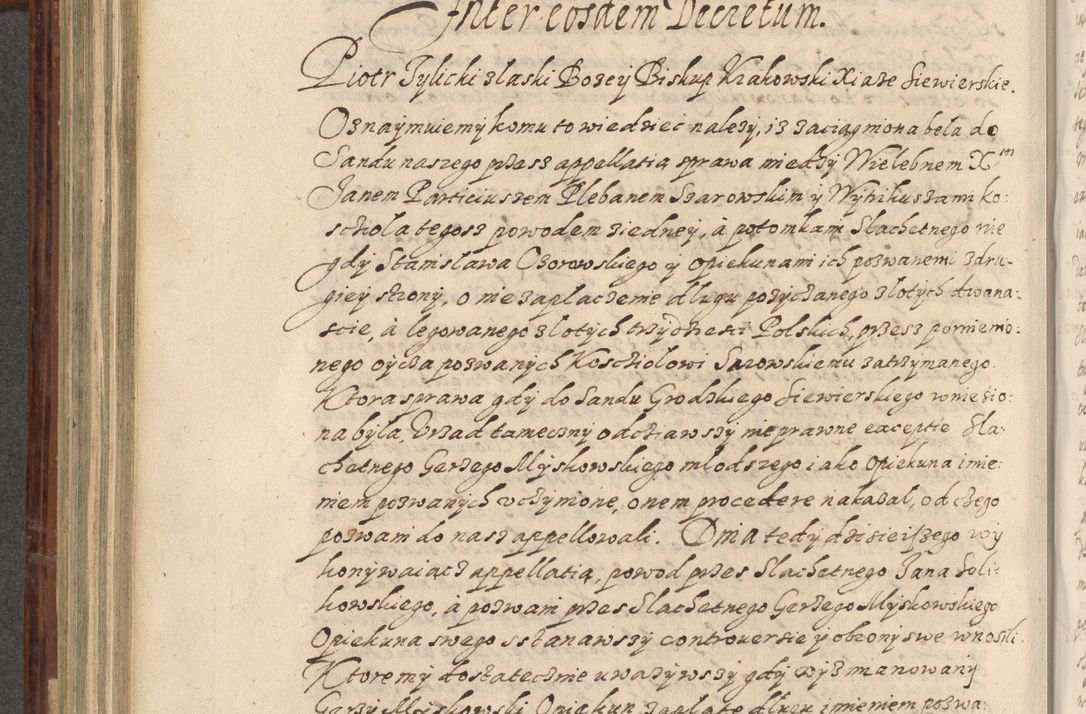 Inter eosdem Decretum.
Piotr Tylicki z laski Bozey Biskup Krakowski Xiaze Siewierskie.
Oznaymuiemy komu to wiedzieć nalezy, iz zaciągniona bela do
Sandu naszego przesz appellatią sprawa miedzy Wielebnem Xm
Janem Particiuszem Plebanem Szarowskim y Wytrikuszami ko:
sciola tegosz powodem ziedney, à potomkam Slachetnego nie
gdy Stanislawa Ozorowskiego y opiekunami ich pozwanemi zdru-
giey strony, o niezaplaczenie dlugu pozyczanego zlotych dwana:
scie, à legowanego zlotych trzydziesci Polskich, przesz pomienio:
nego oycza pozwanych Kosciolowi Sarowskiemu zatrzymanego.
Ktora sprawa gdy do Sandu Grodzkiego Siewierskiego wniesio:
na była, Vrzad tameczny odciawszy nieprawne exceptie Sla:
chetnego Gerzego Myskowskiego mlodszego iako opiekuna imie:
niem pozwanych vczynione, onem procedere nakazal, od czego
pozwani do nas appellowali. Dnia tedy dzisieiszego wy
konywaiacz appellatią, powod przes Slachetnego Jana Soli:
kowskiego, à pozwani przes Slachetnego Gerzego Myskowskiego
Opiekuna swego sstanawszy controuersie y obrony swe wnosili.
Ktore my dostatecznie vwazywszy gdy wyzmianowany
Gerzy Myskowski Opiekun zaplate dlugu imieniem pozwa: